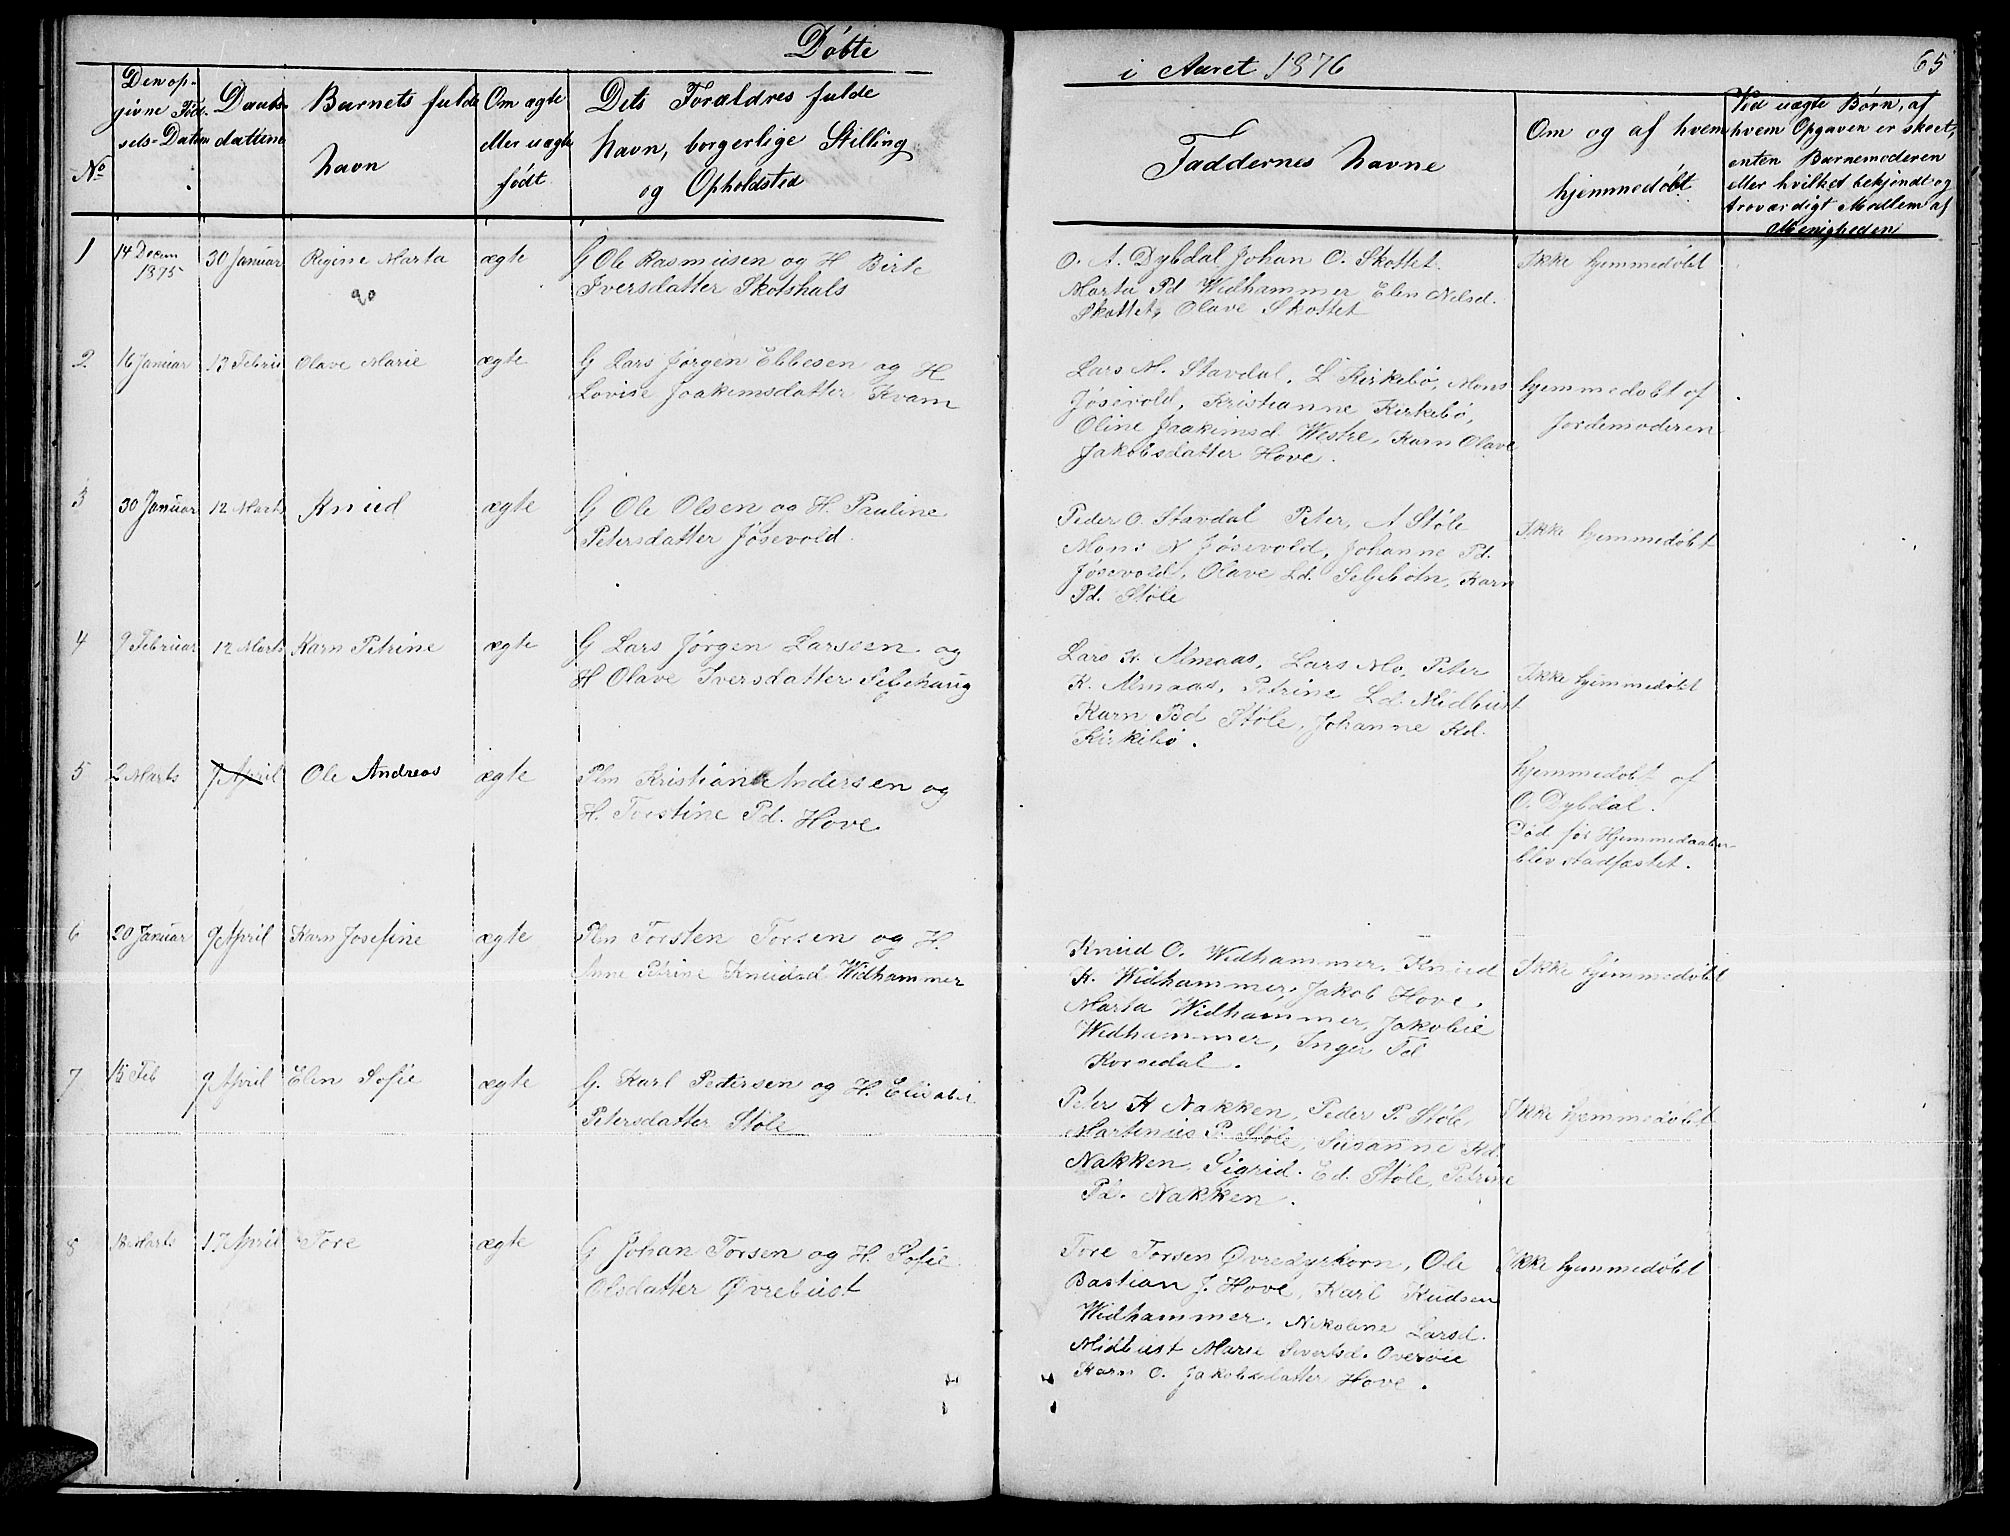 Döbte
i Aaret 1876
65
No
Den op-
givne Föd-
sels-Datum
Daabs-
datum
Barnets fulde
Navn
Om ægte
eller uægte
født
Dets Forældres fulde
Navn, borgerlige Stilling
og Opholdsted
Faddernes Navne
Om og af hvem
hjemmedøbt
Ved uægte Børn, af
hvem Opgaven er skeet,
enten Barnemoderen
eller hvilket bekjendt og
troværdigt Medlem af
Menigheden
1
14 Decem
1875
30 Januar
Regine Marta
ægte
G Ole Rasmusen og H Birte
Iversdatter Skotshals
O. A. Dybdal Johan O. Skottet
Marta Pd Widhammer Elen Nilsd.
Skottet, Olave Skottet
Ikke hjemmedøbt
2
16 Januar
13 Februi
Olave Marie
ægte
G Lars Jørgen Ebbesen og H
Lovise Joakimsdatter Kvam
Lars M. Stavdal, L Kirkebö, Mons
Jösevold, Kristianne Kirkebö,
Oline Joakimsd Westre, Karn Olave
Jakobsdatter Hove.
hjemmedøbt af
Jordemoderen
3
30 Januar
12 Marts
Knud
ægte
G Ole Olsen og H. Pauline
Petersdatter Jösevold.
Peder O. Stavdal Peter, A Støle
Mons N Jösevold, Johanne Pd.
Jösevold, Olave Ld. Selsbötn, Karn
Pd. Støle
Ikke hjemmedøbt
4
9 Februar
12 Marts
Karn Petrine
ægte
G Lars Jørgen Larssen og
H Olave Iversdatter
Lars K. Almaas, Lars Mo, Peter
K. Almaas, Petrine Ld Midbust
Karn Pd Støle, Johanne Kd.
Kirkebø.
Ikke hjemmedöbt
5
2 Marts
9 April
Ole Andreas
ægte
Plm Kristian Andersen og
H. Torstine Pd. Hove
hjemmedøbt af
O. Dybdal.
Död før Hjemmedaaben
blev stadfæstet.
6
20 Januar
9 April
Karn Josefine
ægte
Plm Torsten Torsen og H.
Anne Petrine Knudsd Widhammer
Knud O. Widhammer, Knud
K. Widhammer, Jakob Hove.
Marta Widhammer, Jakobie
Widhammer, Inger Td
Korsedal.
Ikke hjemmedøbt
7
15 Feb
9 April
Elen Sofie
ægte
G. Karl Petersen og H. Elisabet
Petersdatter Støle
Peter K Nakken, Peder P. Støle,
Martinus P. Støle, Susanne Kd.
Nakken, Sigrid. Ed. Støle, Petrine
Pd. Nakken.
Ikke hjemmedøbt
8
18 Marts
17 April
Tore
ægte
G Johan Torsen og H. Sofie
Olsdatter Øvrebust
Tore Torsen Øvredyrkorn, Ole
Bastian J. Hove, Karl Kudsen
Widhammer, Nikoline Larsd.
Midbust Marie Sivertsd. Overöie
Karn O. Jakobsdatter Hove.
Ikke hjemmedøbt